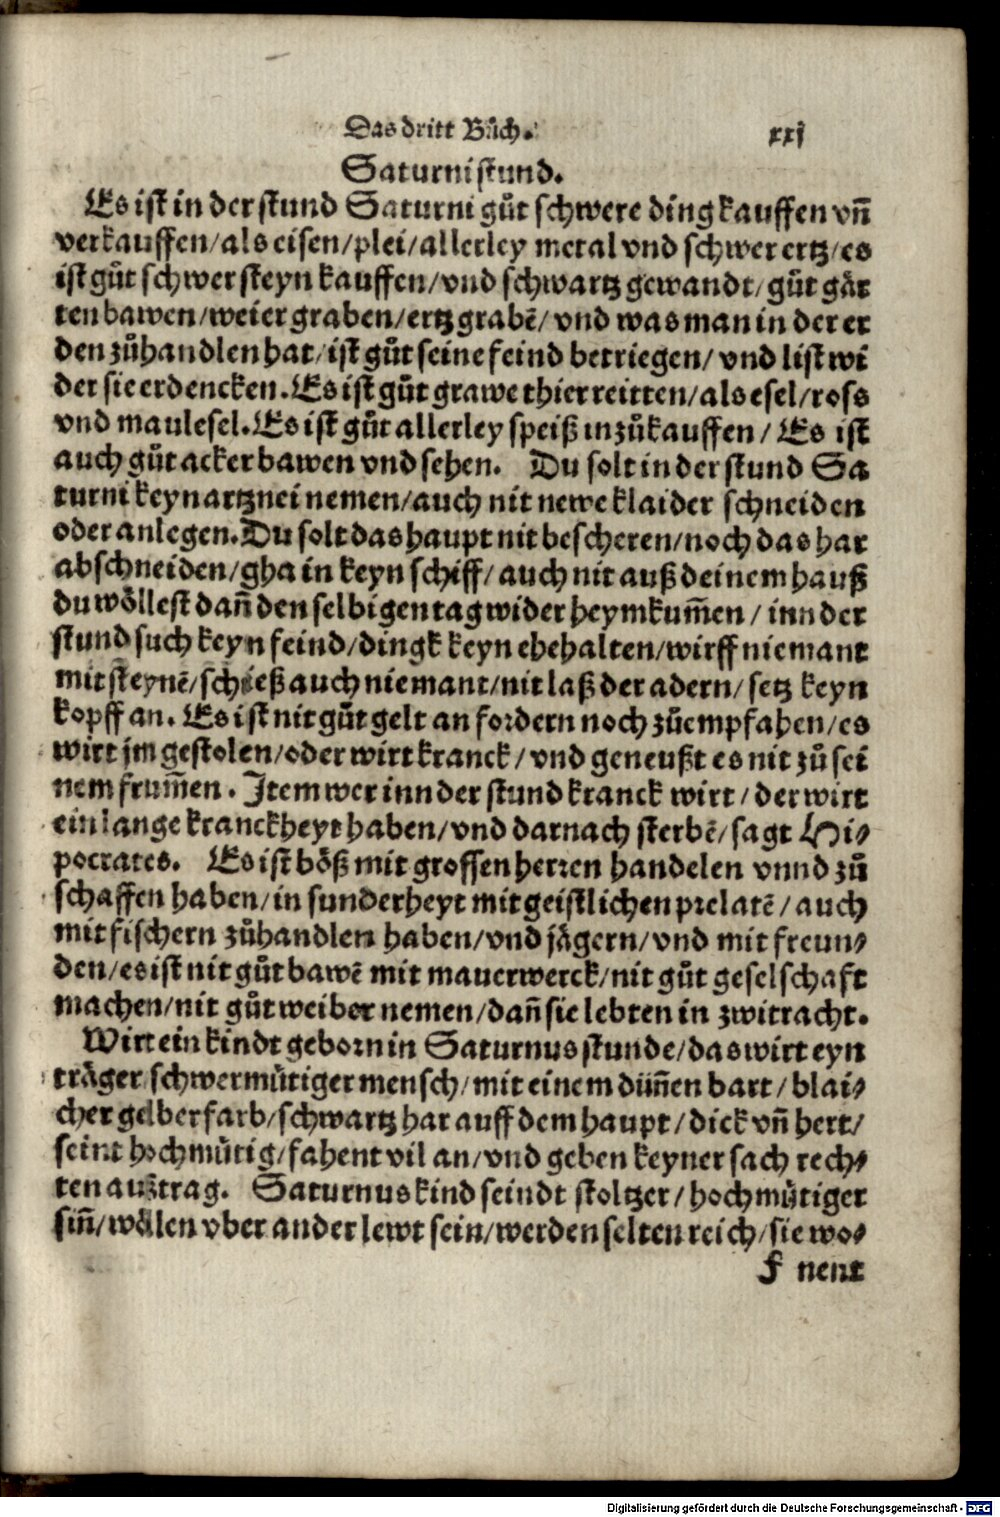 Das dritt Bůch. xxj
Saturni stund.
Es ist in der stund Saturni gůt schwere ding kauffen vñ
verkauffen/als eisen/plei/allerley metal vnd schwer ertz/es
ist gůt schwer steyn kauffen/vnd schwartz gewandt/gůt går
ten bawen/weier graben/ertz grabē/vnd was man in der er
den zůhandlen hat/ist gůt seine feind betriegen/vnd list wi
der sie erdencken. Es ist gůt grawe thier reitten/als esel/ross
vnd maulesel. Es ist gůt allerley speiß inzůkauffen/Es ist
auch gůt acker bawen vnd sehen. Du solt in der stund Sa
turni keyn artznei nemen/auch nit newe klaider schneiden
oder anlegen. Du solt das haupt nit bescheren/noch das har
abschneiden/gha in keyn schiff/auch nit auß deinem hauß
du wöllest dañ den selbigen tag wider heymkum̃en/inn der
stund such keyn feind/dingk keyn ehehalten/wirff niemant
mit steynē/schieß auch niemant/nit laß der adern/setz keyn
kopff an. Es ist nit gůt gelt an fordern noch zůempfahen/es
wirt jm gestolen/oder wirt kranck/vnd geneußt es nit zů sei
nem frum̃en. Item wer inn der stund kranck wirt/der wirt
ein lange kranckheyt haben/vnd darnach sterbē/sagt Hi⸗
pocrates. Es ist böß mit grossen herren handelen vnnd zů
schaffen haben/in sunderheyt mit geistlichen prelatē/auch
mit fischern zůhandlen haben/vnd jägern/vnd mit freun⸗
den/es ist nit gůt bawē mit mauerwerck/nit gůt geselschaft
machen/nit gůt weiber nemen/dañ sie lebten in zwitracht.
Wirt ein kindt geborn in Saturnus stunde/das wirt eyn
träger schwermůtiger mensch/mit einem düñen bart/blai⸗
cher gelber farb/schwartz har auff dem haupt/dick vñ hert/
seint hochmůtig/fahent vil an/vnd geben keyner sach rech⸗
ten außtrag. Saturnus kind seindt stoltzer/hochmůtiger
siñ/wölen vber ander lewt sein/werden selten reich/sie wo⸗
f nent
Digitalisierung gefördert durch die Deutsche Forschungsgemeinschaft - DFG